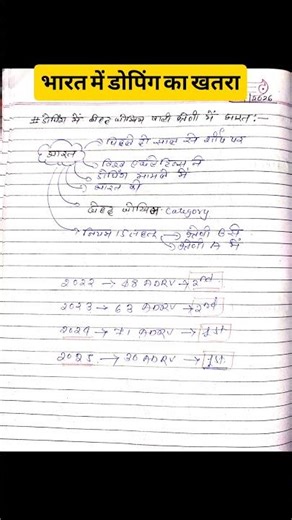 भारत में डोपिंग का खतरा
# डोपिंग में बेहद जोखिम वाली श्रेणी में भारत:-
भारत
पिछले दो साल से शीर्ष पर
विश्व एथलेटिक्स ने
डोपिंग मामले में
भारत को
बेहद जोखिम category
नियम 15 तहत
श्रेणी B से
श्रेणी A में
2022 → 48 ADRV → 2nd
2023 → 63 ADRV → 2nd
2024 → 71 ADRV → 1st
2025 → 30 ADRV → 1st